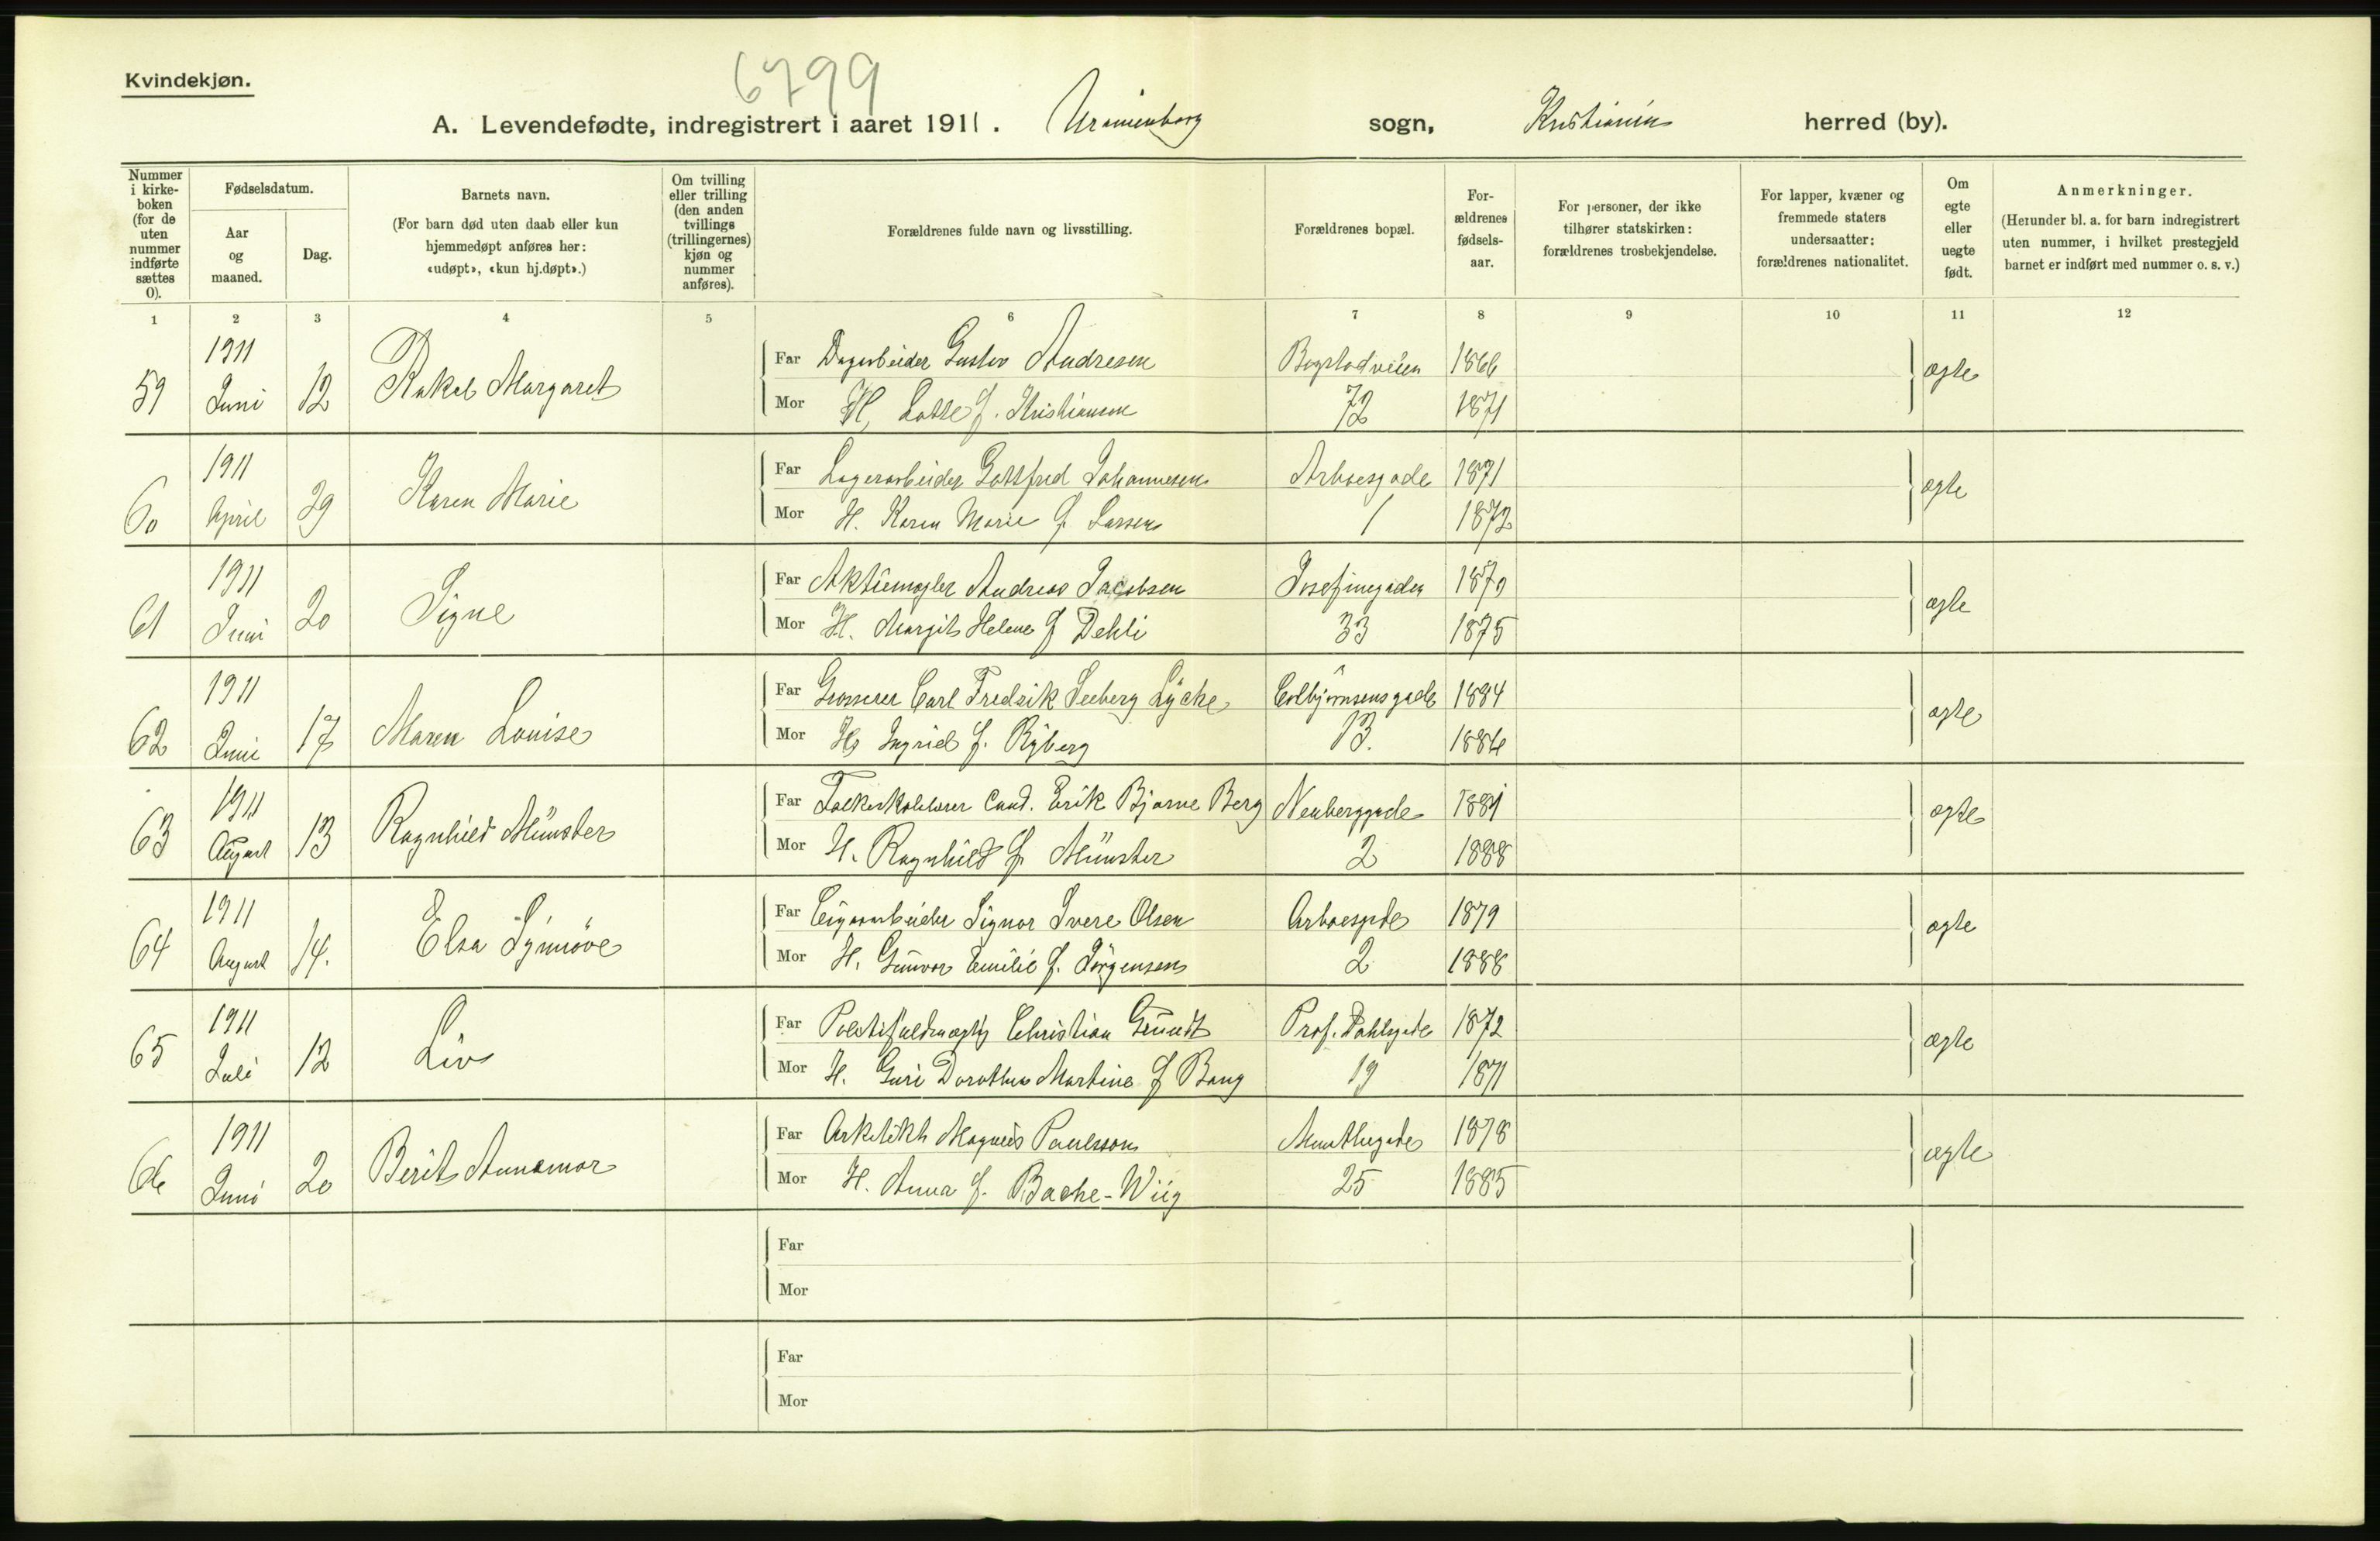 Kvindekjøn.
6799
A. Levendefødte, indregistrert i aaret 1911. Uranienborg sogn, Kristiania herred (by).
Nummer i kirke-boken (for de uten nummer indførte sættes 0).
Fødselsdatum.
Aar og maaned.
Dag.
Barnets navn.
(For barn død uten daab eller kun hjemmedøpt anføres her: «udøpt», «kun hj.døpt».)
Om tvilling eller trilling (den anden tvillings (trillingernes) kjøn og nummer anføres).
Forældrenes fulde navn og livsstilling.
Forældrenes bopæl.
For-ældrenes fødsels-aar.
For personer, der ikke tilhører statskirken: forældrenes trosbekjendelse.
For lapper, kvæner og fremmede staters undersaatter: forældrenes nationalitet.
Om egte eller uegte født.
Anmerkninger.
(Herunder bl. a. for barn indregistrert uten nummer, i hvilket prestegjeld barnet er indført med nummer o. s. v.)
1 2 3 4 5 6 7 8 9 10 11 12
59 1911 Juni 12 Rakel Margaret
Far Dagarbeider Gustav Andresen Bogstadveien 1866 ægte
Mor H. Lotte f. Kristiansen 72 1871
60 1911 April 29 Karen Marie
Far Lagerarbeider Gottfred Johannesen Arboesgade 1871 ægte
Mor H. Karen Marie f. Larsen 1 1872
61 1911 Juni 20 Signe
Far Aktiemægler Andreas Jacobsen Josefinegaden 1870 ægte
Mor H. Margit Helene f Dehli 33 1875
62 1911 Juni 17 Maren Louise
Far Grosserer Carl Fredrik Seeberg Lycke Colbjørnsensgade 1884 ægte
Mor H. Ingrid f. Ryberg 13. 1884
63 1911 August 13 Ragnhild Münster
Far Folkeskolelærer Cand. Erik Bjarne Berg Neuberggade 1881 ægte
Mor H. Ragnhild f. Münster 2 1888
64 1911 August 14. Elsa Synnøve
Far Cigararbeider Signor Svere Olsen Arboesgade 1879 ægte
Mor H. Gunvor Emilie f. Jørgensen 2 1888
65 1911 Juli 12 Liv
Far Politifuldmægtig Christian Grundt Prof. Dahlsgade 1872 ægte
Mor H. Guri Dorothea Martine f Bang 19 1871
66 1911 Juni 20 Berit Annamor
Far Arkitekt Magnus Poulsson Munthesgade 1878 ægte
Mor H. Anna f. Bache-Wiig 25 1885
Far
Mor
Far
Mor